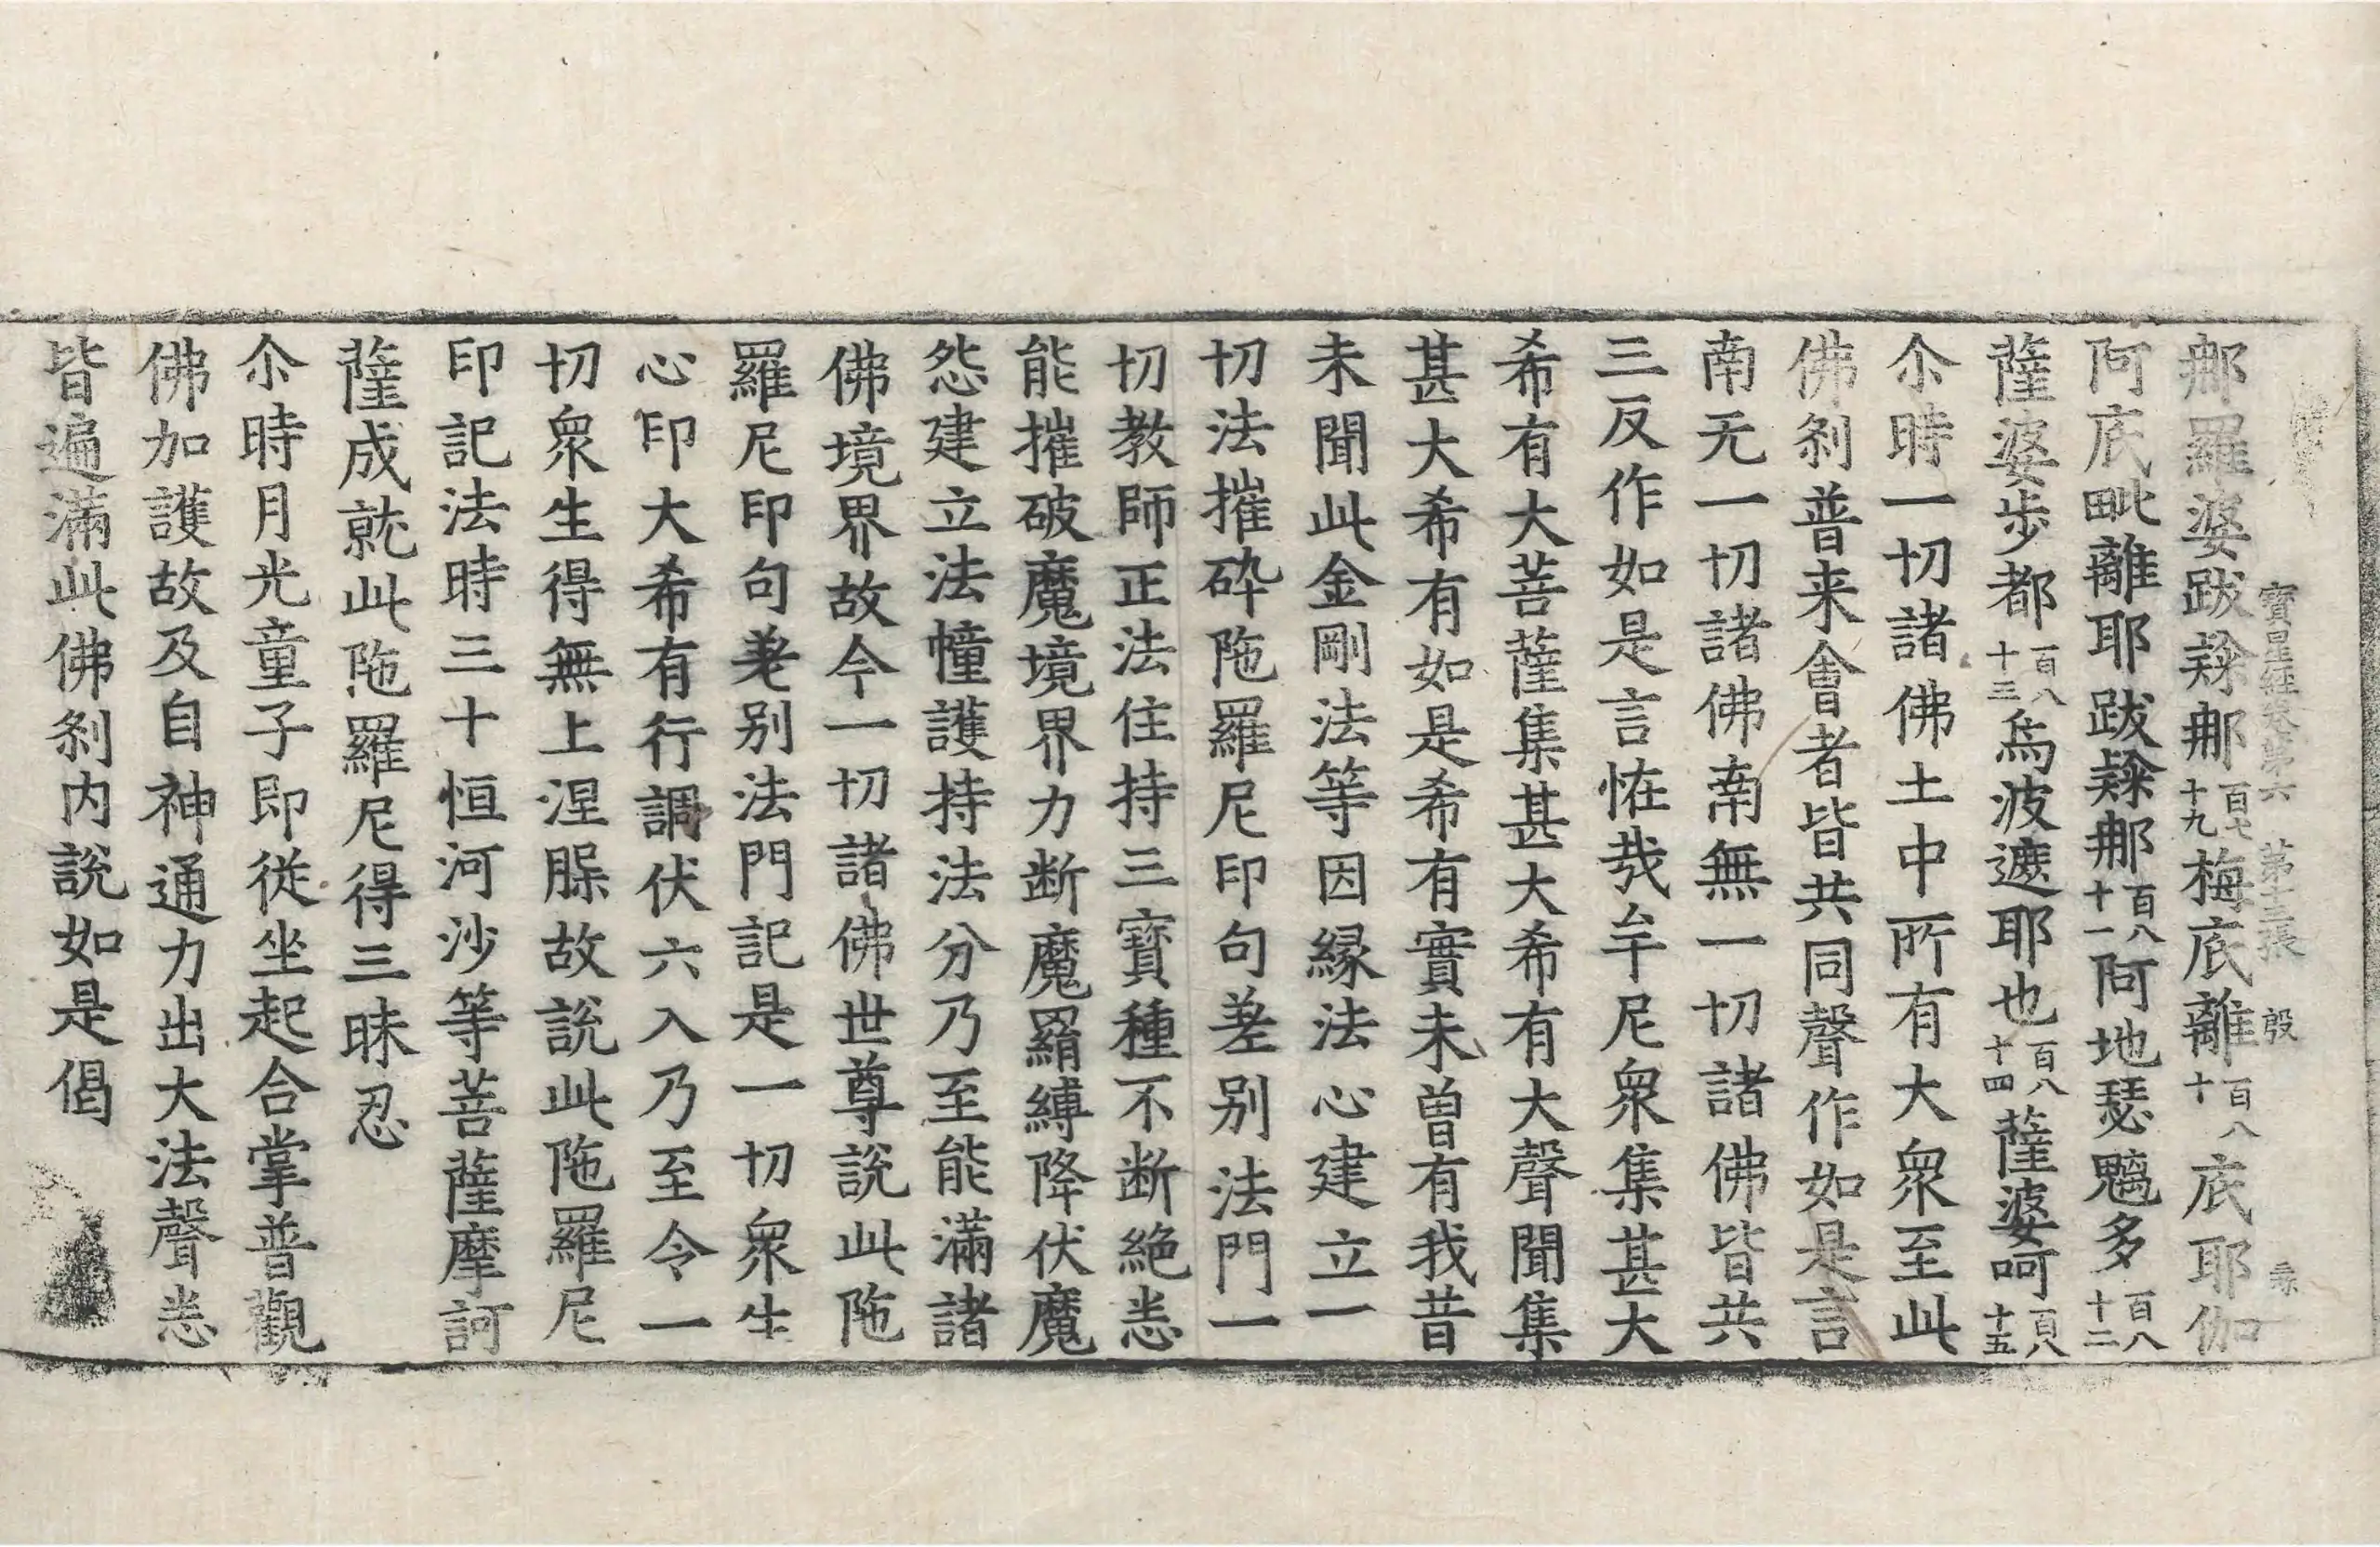 寶星經卷第六 第十三張 殷
𨚗羅婆跋𨇤𨚗百七十九梅底離百八十底耶伽
阿底毗離耶跋𨇤𨚗百八十一阿地瑟魑多百八十二
薩婆步都百八十三烏波遮耶也百八十四薩婆呵百八十五
尒時一切諸佛土中所有大眾至此
佛刹普来會者皆共同聲作如是言
南无一切諸佛南無一切諸佛皆共
三反作如是言恠㢤牟尼眾集甚大
希有大菩薩集甚大希有大聲聞集
甚大希有如是希有實未曽有我昔
未聞此金剛法等因縁法心建立一
切法摧碎陁羅尼印句差别法門一
切教師正法住持三寳種不断絶悉
能摧破魔境界力断魔羂縛降伏魔
怨建立法幢護持法分乃至能滿諸
佛境界故今一切諸佛世尊說此陁
羅尼印句差别法門記是一切眾生
心印大希有行調伏六入乃至令一
切眾生得無上涅槃故說此陁羅尼
印記法時三十恒河沙等菩薩摩訶
薩成就此陁羅尼得三昧忍
尒時月光童子即従坐起合掌普觀
佛加護故及自神通力出大法聲悉
皆遍滿此佛刹内說如是偈